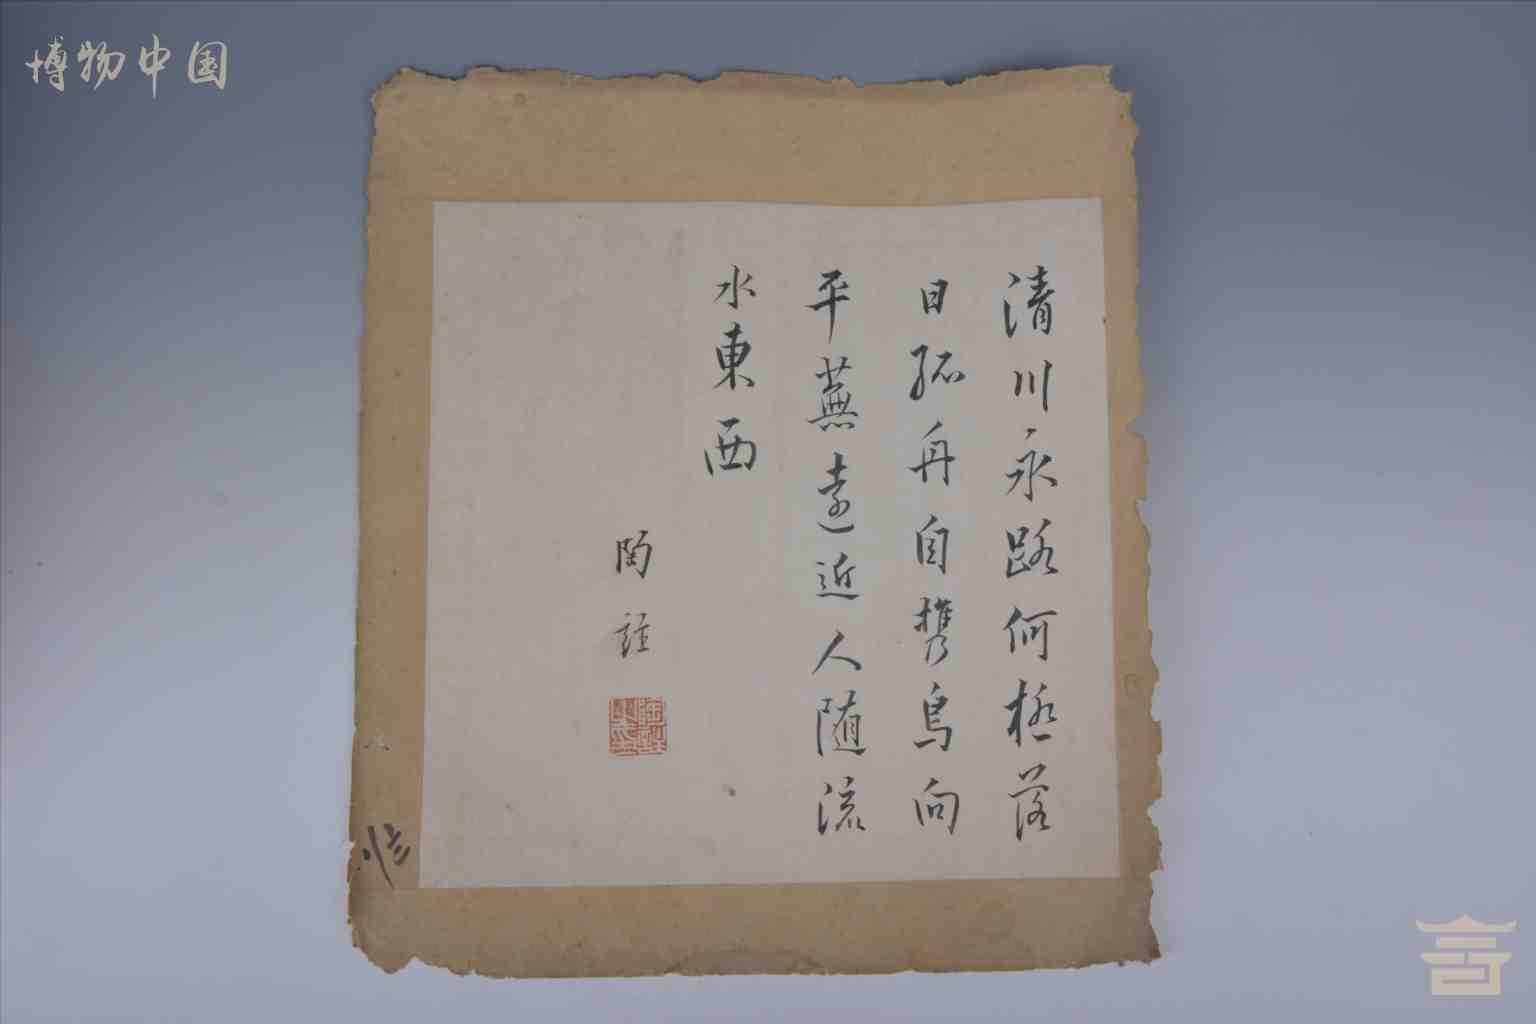 博物中国
清川永路何極落
日孤舟自携鳥向
平蕪遠近人随流
水東西
陶詮